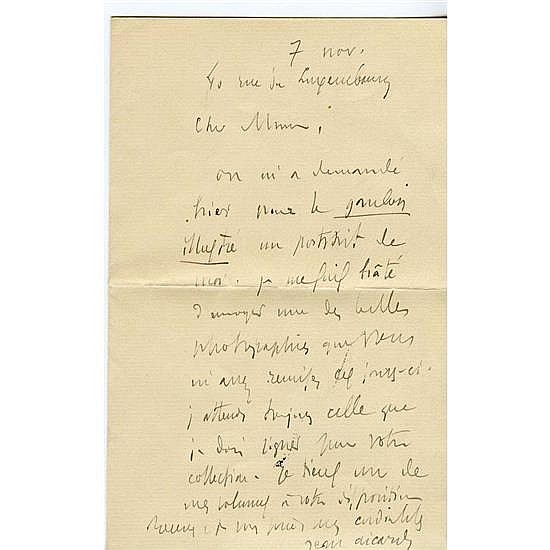 7 nov.
40 rue du Luxembourg
Cher Monsieur,
on m'a demandé
hier pour le gaulois
illustré un portrait de
moi. je me suis hâté
d'envoyer une des belles
photographies que vous
m'avez remises ces jours-ci.
j'attends toujours celle que
je dois signer pour votre
collection. Je tiens un de
mes volumes à votre disposition
Recevez et mes cordialités
Jean Aicard